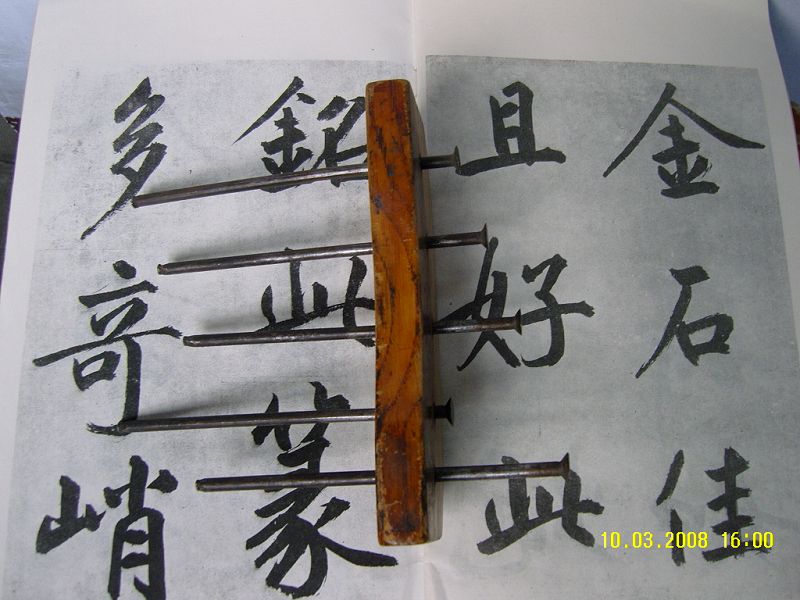 金石佳
且好此
銘此篆
多奇峭
10.03.2008 16:00